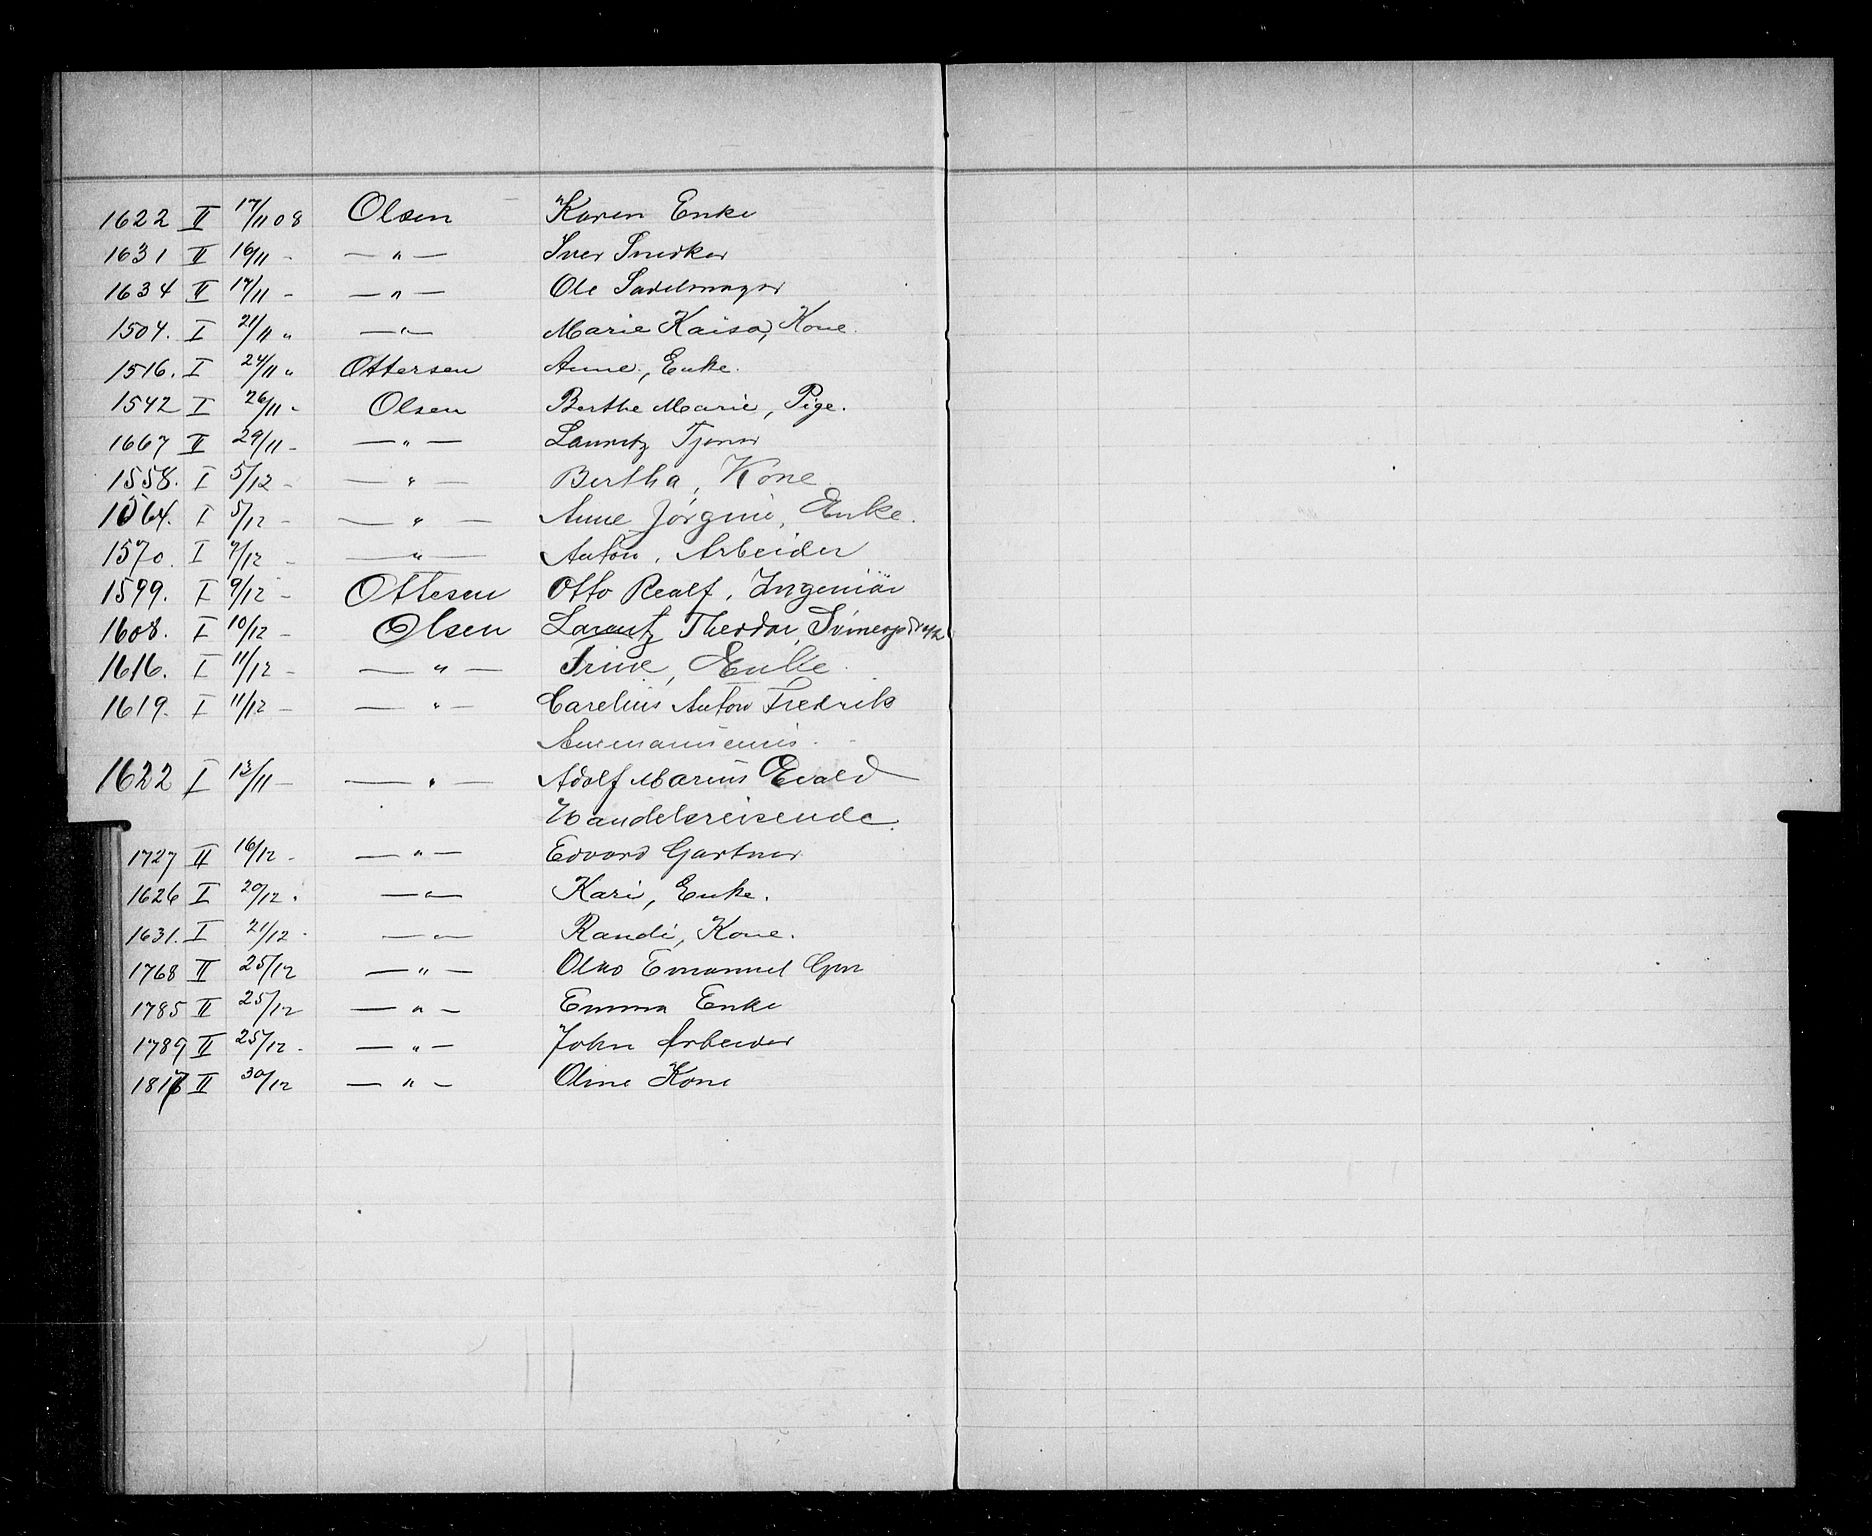 1622 II 17/11 08 Olsen Karen Enke
1631 II 16/11 - — " — Iver Snedker
1634 II 17/11 - — " — Ole Sadelmager
1504. I 21/11 " — " — Marie Kaisa, Kone.
1516. I 24/11 " Ottersen Anne, Enke.
1542 I 26/11 - Olsen Berthe Marie, Pige.
1667 II 29/11 - — " — Lauritz Tjener
1558. I 5/12 - — " — Bertha, Kone
1564. I 5/12 - — " — Anne Jørgine, Enke.
1570. I 7/12 - — " — Anton, Arbeider
1599. I 9/12 - Ottesen Otto Realf, Ingeniör
1608. I 10/12 - Olsen Laurentz Theodor,
1616. I 11/12 - — " — Trine, Enke.
1619. I 11/12 - — " — Carelius Anton Fredrik
1622 I 13/11 - — " — Adolf Marius Evald
Handelsreisende.
1727 II 16/12 - — " — Edvard Gartner
1626 I 20/12 . — " — Kari, Enke.
1631. I 21/12 - — " — Randi, Kone.
1768 II 25/12 — " — Emanuel
1785 II 25/12 — " — Emma Enke
1789 II 25/12 - — " — John Arbeider
II 30/12 — " — Oline Kone